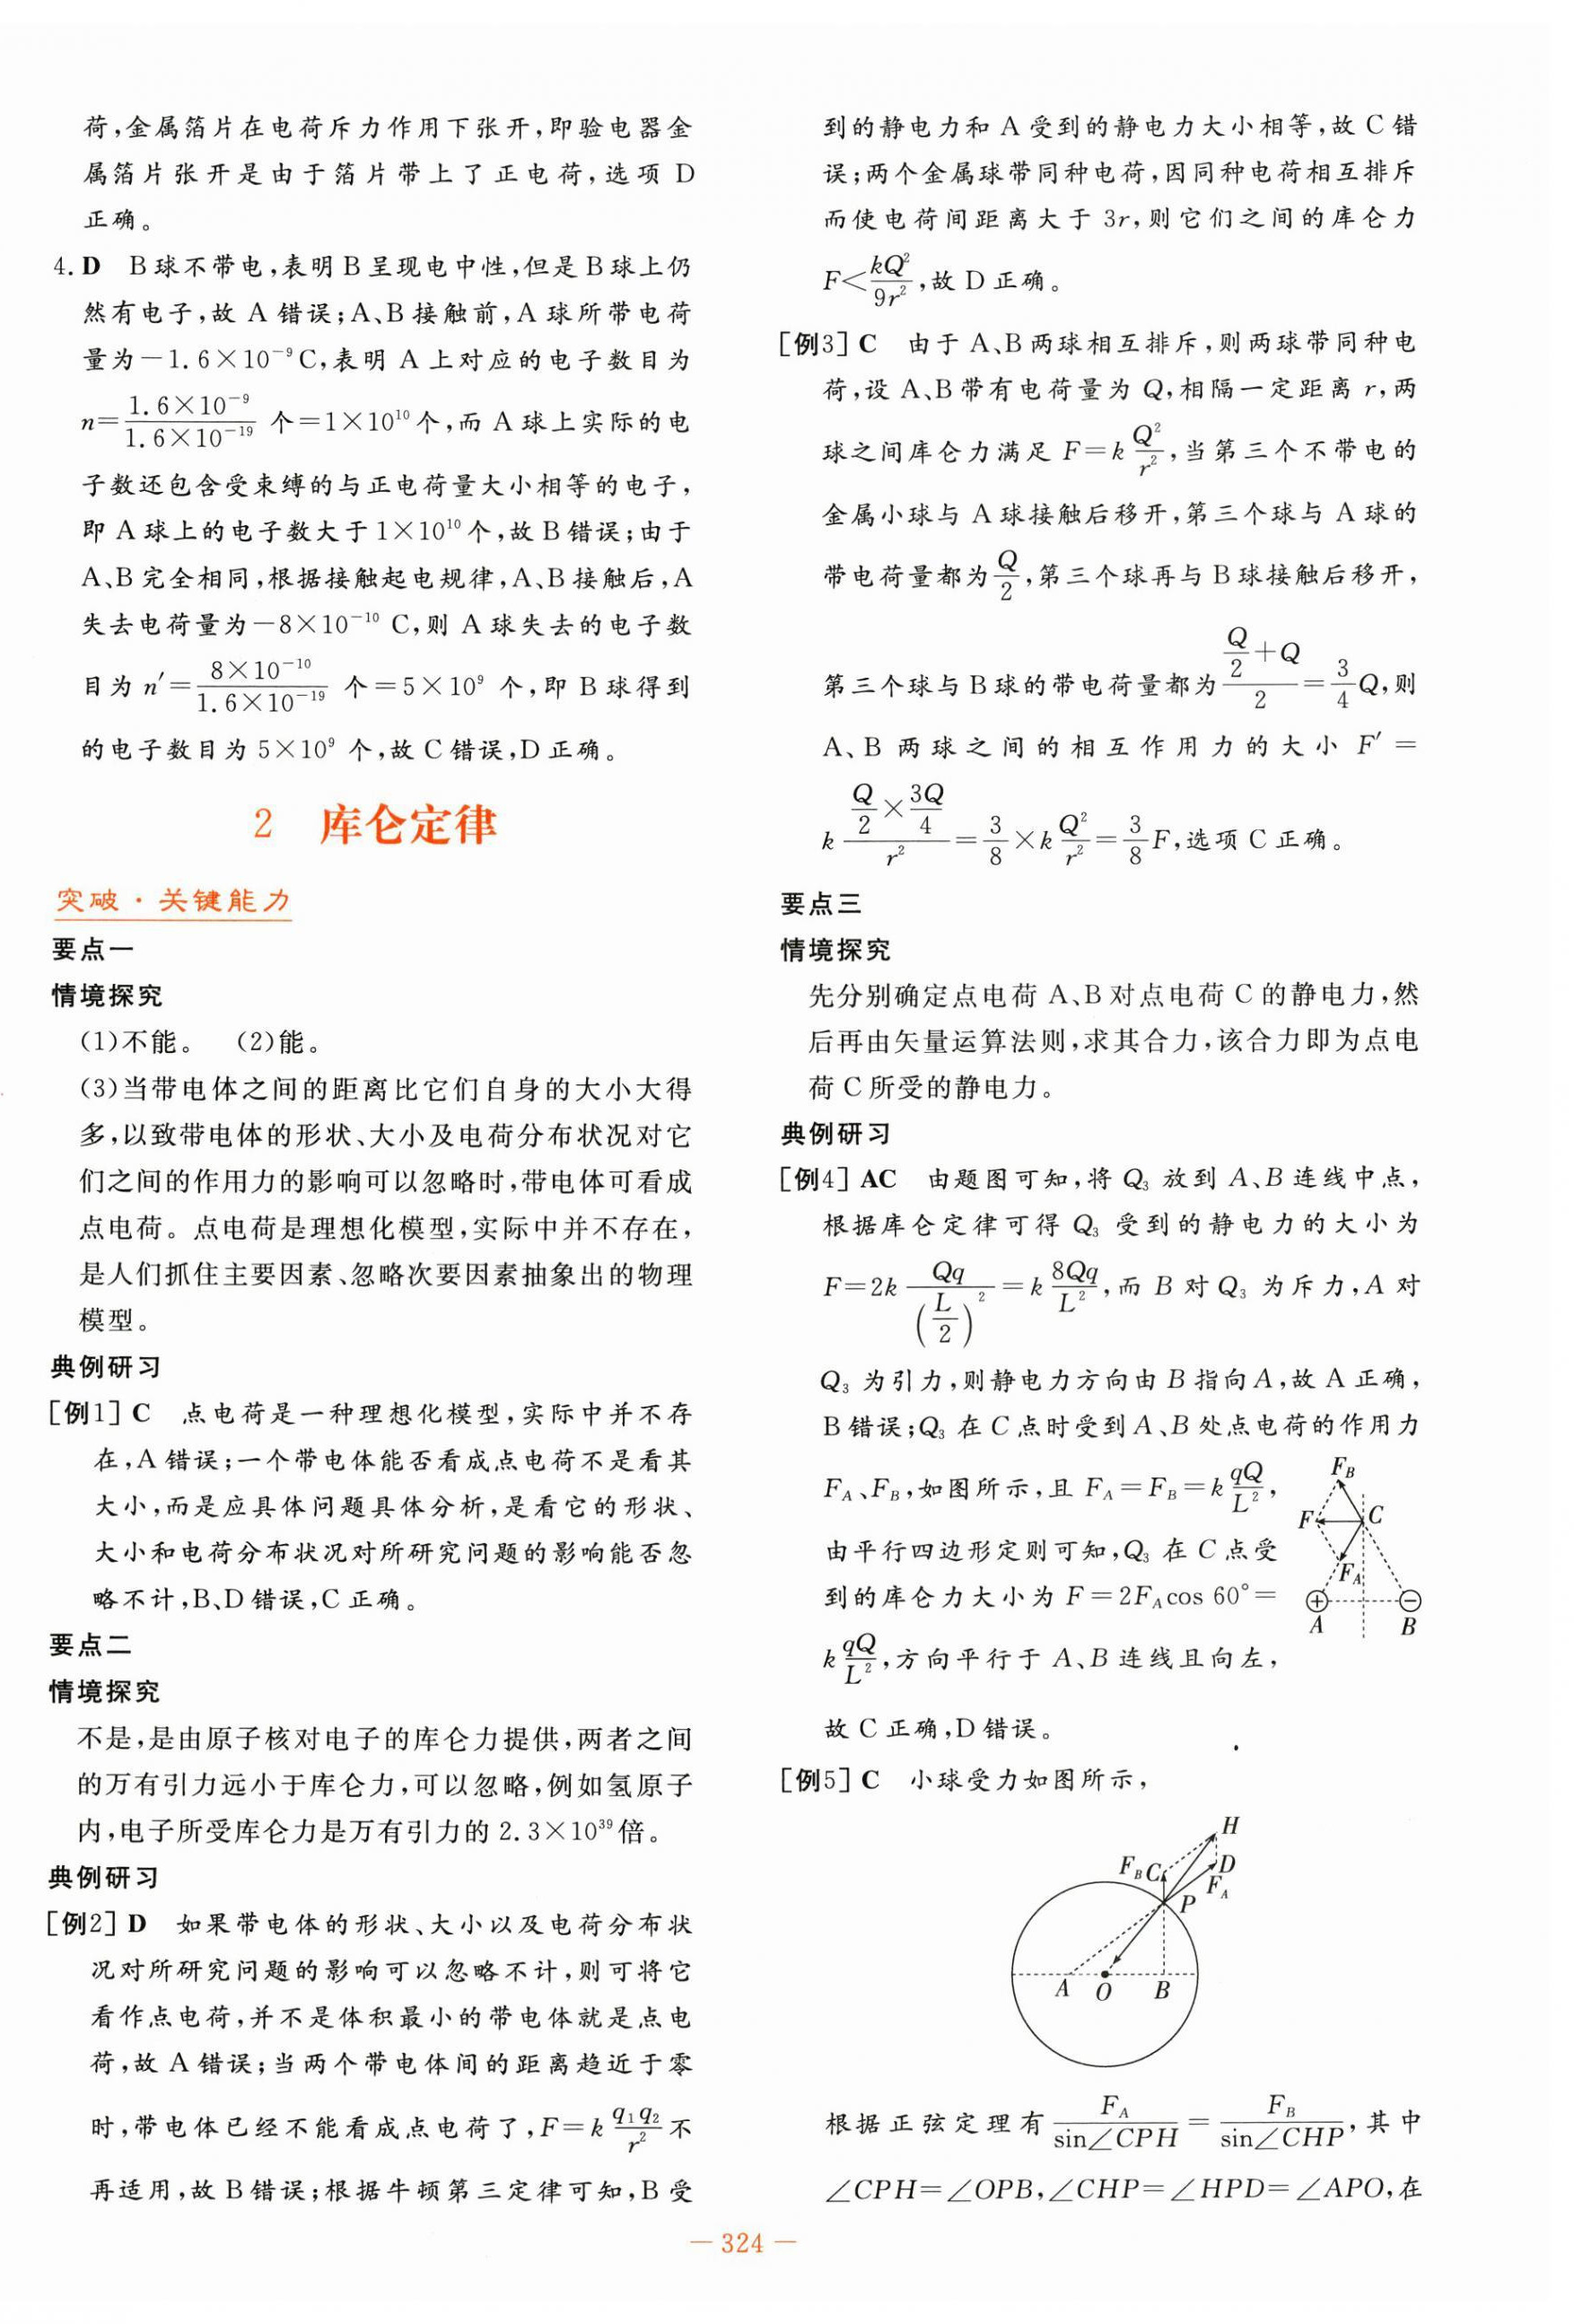 荷,金属箔片在电荷斥力作用下张开,即验电器金
属箔片张开是由于箔片带上了正电荷,选项 D
正确。
4. D B球不带电,表明B呈现电中性,但是B球上仍
然有电子,故 A 错误;A、B接触前,A 球所带电荷
量为－1.6×10⁻⁹C,表明 A 上对应的电子数目为
n=\frac{1.6×10⁻⁹}{1.6×10⁻¹⁹} 个=1×10¹⁰个,而 A 球上实际的电
子数还包含受束缚的与正电荷量大小相等的电子,
即 A 球上的电子数大于1×10¹⁰个,故B错误;由于
A、B完全相同,根据接触起电规律,A、B接触后,A
失去电荷量为－8×10⁻¹⁰ C,则 A 球失去的电子数
目为 n′=\frac{8×10⁻¹⁰}{1.6×10⁻¹⁹} 个=5×10⁹ 个,即 B 球得到
的电子数目为 5×10⁹ 个,故 C 错误,D 正确。
2 库仑定律
突破·关键能力
要点一
情境探究
(1)不能。 (2)能。
(3)当带电体之间的距离比它们自身的大小大得
多,以致带电体的形状、大小及电荷分布状况对它
们之间的作用力的影响可以忽略时,带电体可看成
点电荷。点电荷是理想化模型,实际中并不存在,
是人们抓住主要因素、忽略次要因素抽象出的物理
模型。
典例研习
[例1] C 点电荷是一种理想化模型,实际中并不存
在,A 错误;一个带电体能否看成点电荷不是看其
大小,而是应具体问题具体分析,是看它的形状、
大小和电荷分布状况对所研究问题的影响能否忽
略不计,B、D错误,C 正确。
要点二
情境探究
不是,是由原子核对电子的库仑力提供,两者之间
的万有引力远小于库仑力,可以忽略,例如氢原子
内,电子所受库仑力是万有引力的 2.3×10³⁹倍。
典例研习
[例2] D 如果带电体的形状、大小以及电荷分布状
况对所研究问题的影响可以忽略不计,则可将它
看作点电荷,并不是体积最小的带电体就是点电
荷,故 A 错误;当两个带电体间的距离趋近于零
时,带电体已经不能看成点电荷了,F=k\frac{q₁q₂}{r²}不
再适用,故 B错误;根据牛顿第三定律可知,B 受
到的静电力和 A 受到的静电力大小相等,故 C 错
误;两个金属球带同种电荷,因同种电荷相互排斥
而使电荷间距离大于 3r,则它们之间的库仑力
F<\frac{kQ²}{9r²},故 D 正确。
[例3] C 由于 A、B两球相互排斥,则两球带同种电
荷,设 A、B带有电荷量为 Q,相隔一定距离 r,两
球之间库仑力满足 F=k\frac{Q²}{r²},当第三个不带电的
金属小球与 A 球接触后移开,第三个球与 A 球的
带电荷量都为\frac{Q}{2},第三个球再与 B球接触后移开,
第三个球与 B球的带电荷量都为\frac{\frac{Q}{2}+Q}{2}=\frac{3}{4}Q,则
A、B 两球之间的相互作用力的大小 F′=
k\frac{\frac{Q}{2}×\frac{3Q}{4}}{r²}=\frac{3}{8}×k\frac{Q²}{r²}=\frac{3}{8}F,选项 C 正确。
要点三
情境探究
先分别确定点电荷 A、B对点电荷 C 的静电力,然
后再由矢量运算法则,求其合力,该合力即为点电
荷 C 所受的静电力。
典例研习
[例4] AC 由题图可知,将 Q₃ 放到 A、B 连线中点,
根据库仑定律可得 Q₃ 受到的静电力的大小为
F=2k\frac{Qq}{(\frac{L}{2})²}=k\frac{8Qq}{L²},而 B 对 Q₃ 为斥力,A 对
Q₃ 为引力,则静电力方向由 B 指向A,故 A 正确,
B 错误;Q₃ 在 C 点时受到 A、B 处点电荷的作用力
F_A、F_B,如图所示,且 F_A=F_B=k\frac{qQ}{L²},
由平行四边形定则可知,Q₃ 在 C 点受
到的库仑力大小为 F=2F_A cos 60°=
k\frac{qQ}{L²},方向平行于 A、B 连线且向左,
故 C 正确,D错误。
F_B
F
C
F_A
+
−
A
B
[例5] C 小球受力如图所示,
H
F_B
C
D
F_A
P
A
O
B
根据正弦定理有\frac{F_A}{sin∠CPH}=\frac{F_B}{sin∠CHP},其中
∠CPH=∠OPB,∠CHP=∠HPD=∠APO,在
— 324 —